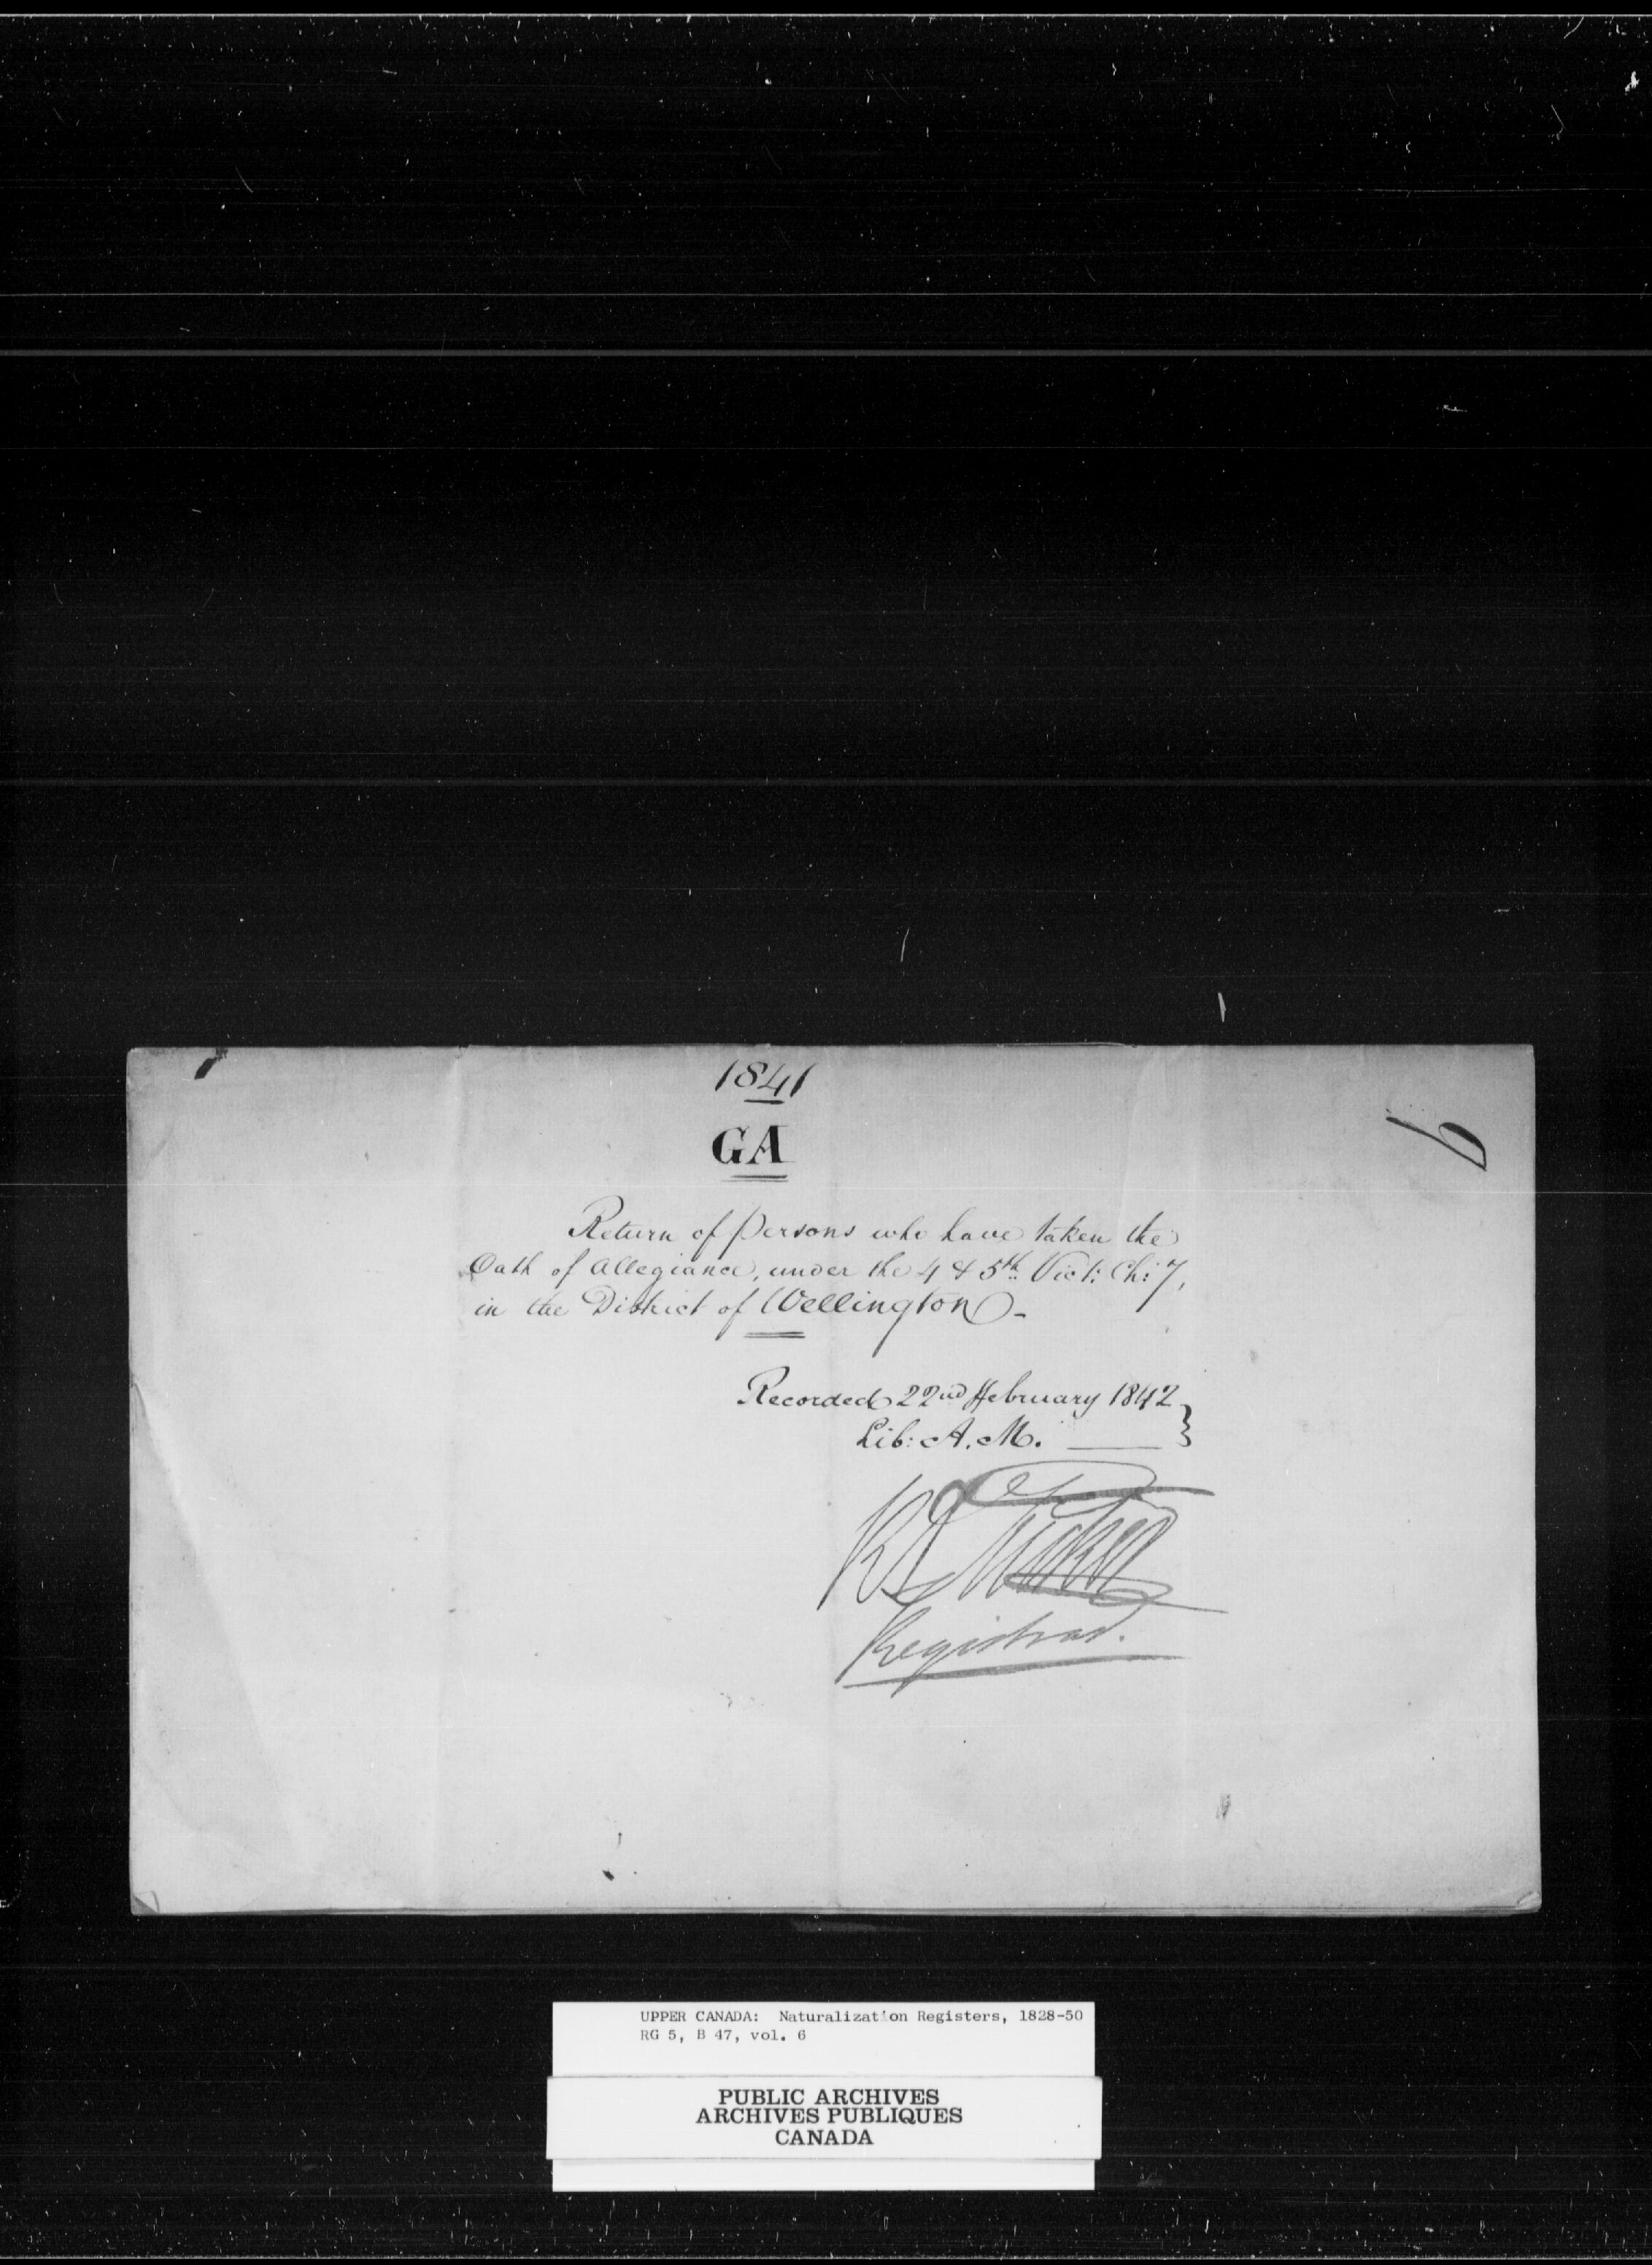 1841
6
GA
Return of persons who have taken the
Oath of Allegiance, under the 4 & 5th Vict: Ch: 7,
in the District of Wellington -
Recorded 22nd ffebruary 1842 }
Lib: A. M.
R A Tucker
Registrar.
UPPER CANADA: Naturalization Registers, 1828-50
RG 5, B 47, vol. 6
PUBLIC ARCHIVES
ARCHIVES PUBLIQUES
CANADA